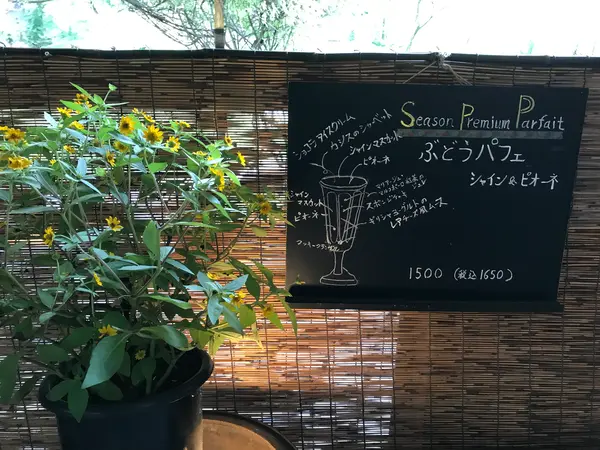 Season Premium Parfait
ぶどうパフェ
シャイン&ピオーネ
1500 (税込1650)
ショコラアイスクリーム
カシスのシャーベット
シャインマスカット
ピオーネ
シャイン
マスカット
ピオーネ
ギリシャヨーグルトの
レアチーズ風ムース